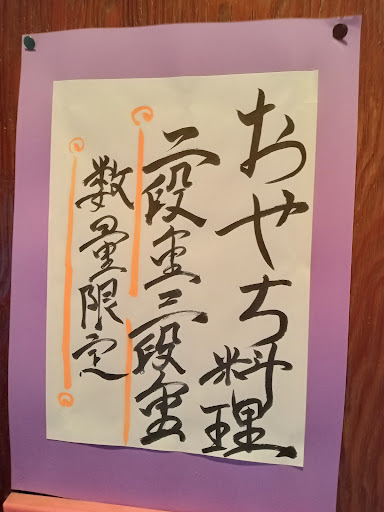 おせち料理
二段重三段重
数量限定